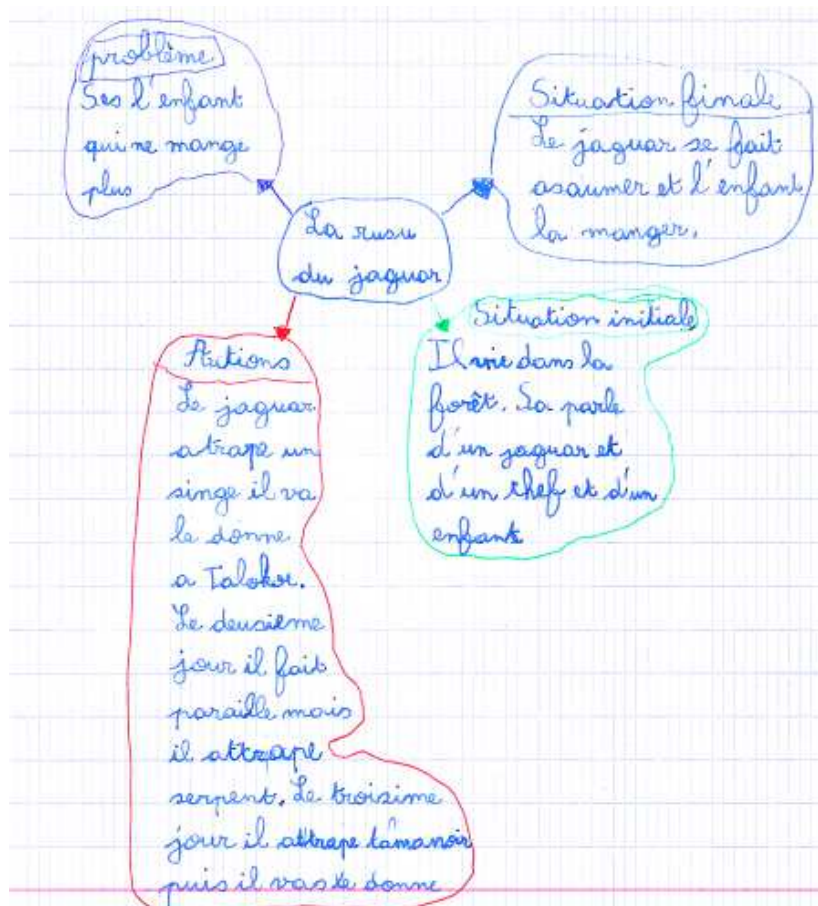 problème
Ses l'enfant
qui ne mange
plus
Situation finale
Le jaguar se fait
asaumer et l'enfant
la manger.
La rusu
du jaguar
Situation initiale
Il vie dans la
forêt. Sa parle
d'un jaguar et
d'un chef et d'un
enfante
Actions
Le jaguar
atrape un
singe il va
le donne
a Talokor.
Le deusième
jour il fait
paraille mais
il attrape
serpent. Le troisime
jour il attrape tamanoir
puis il vas le donne